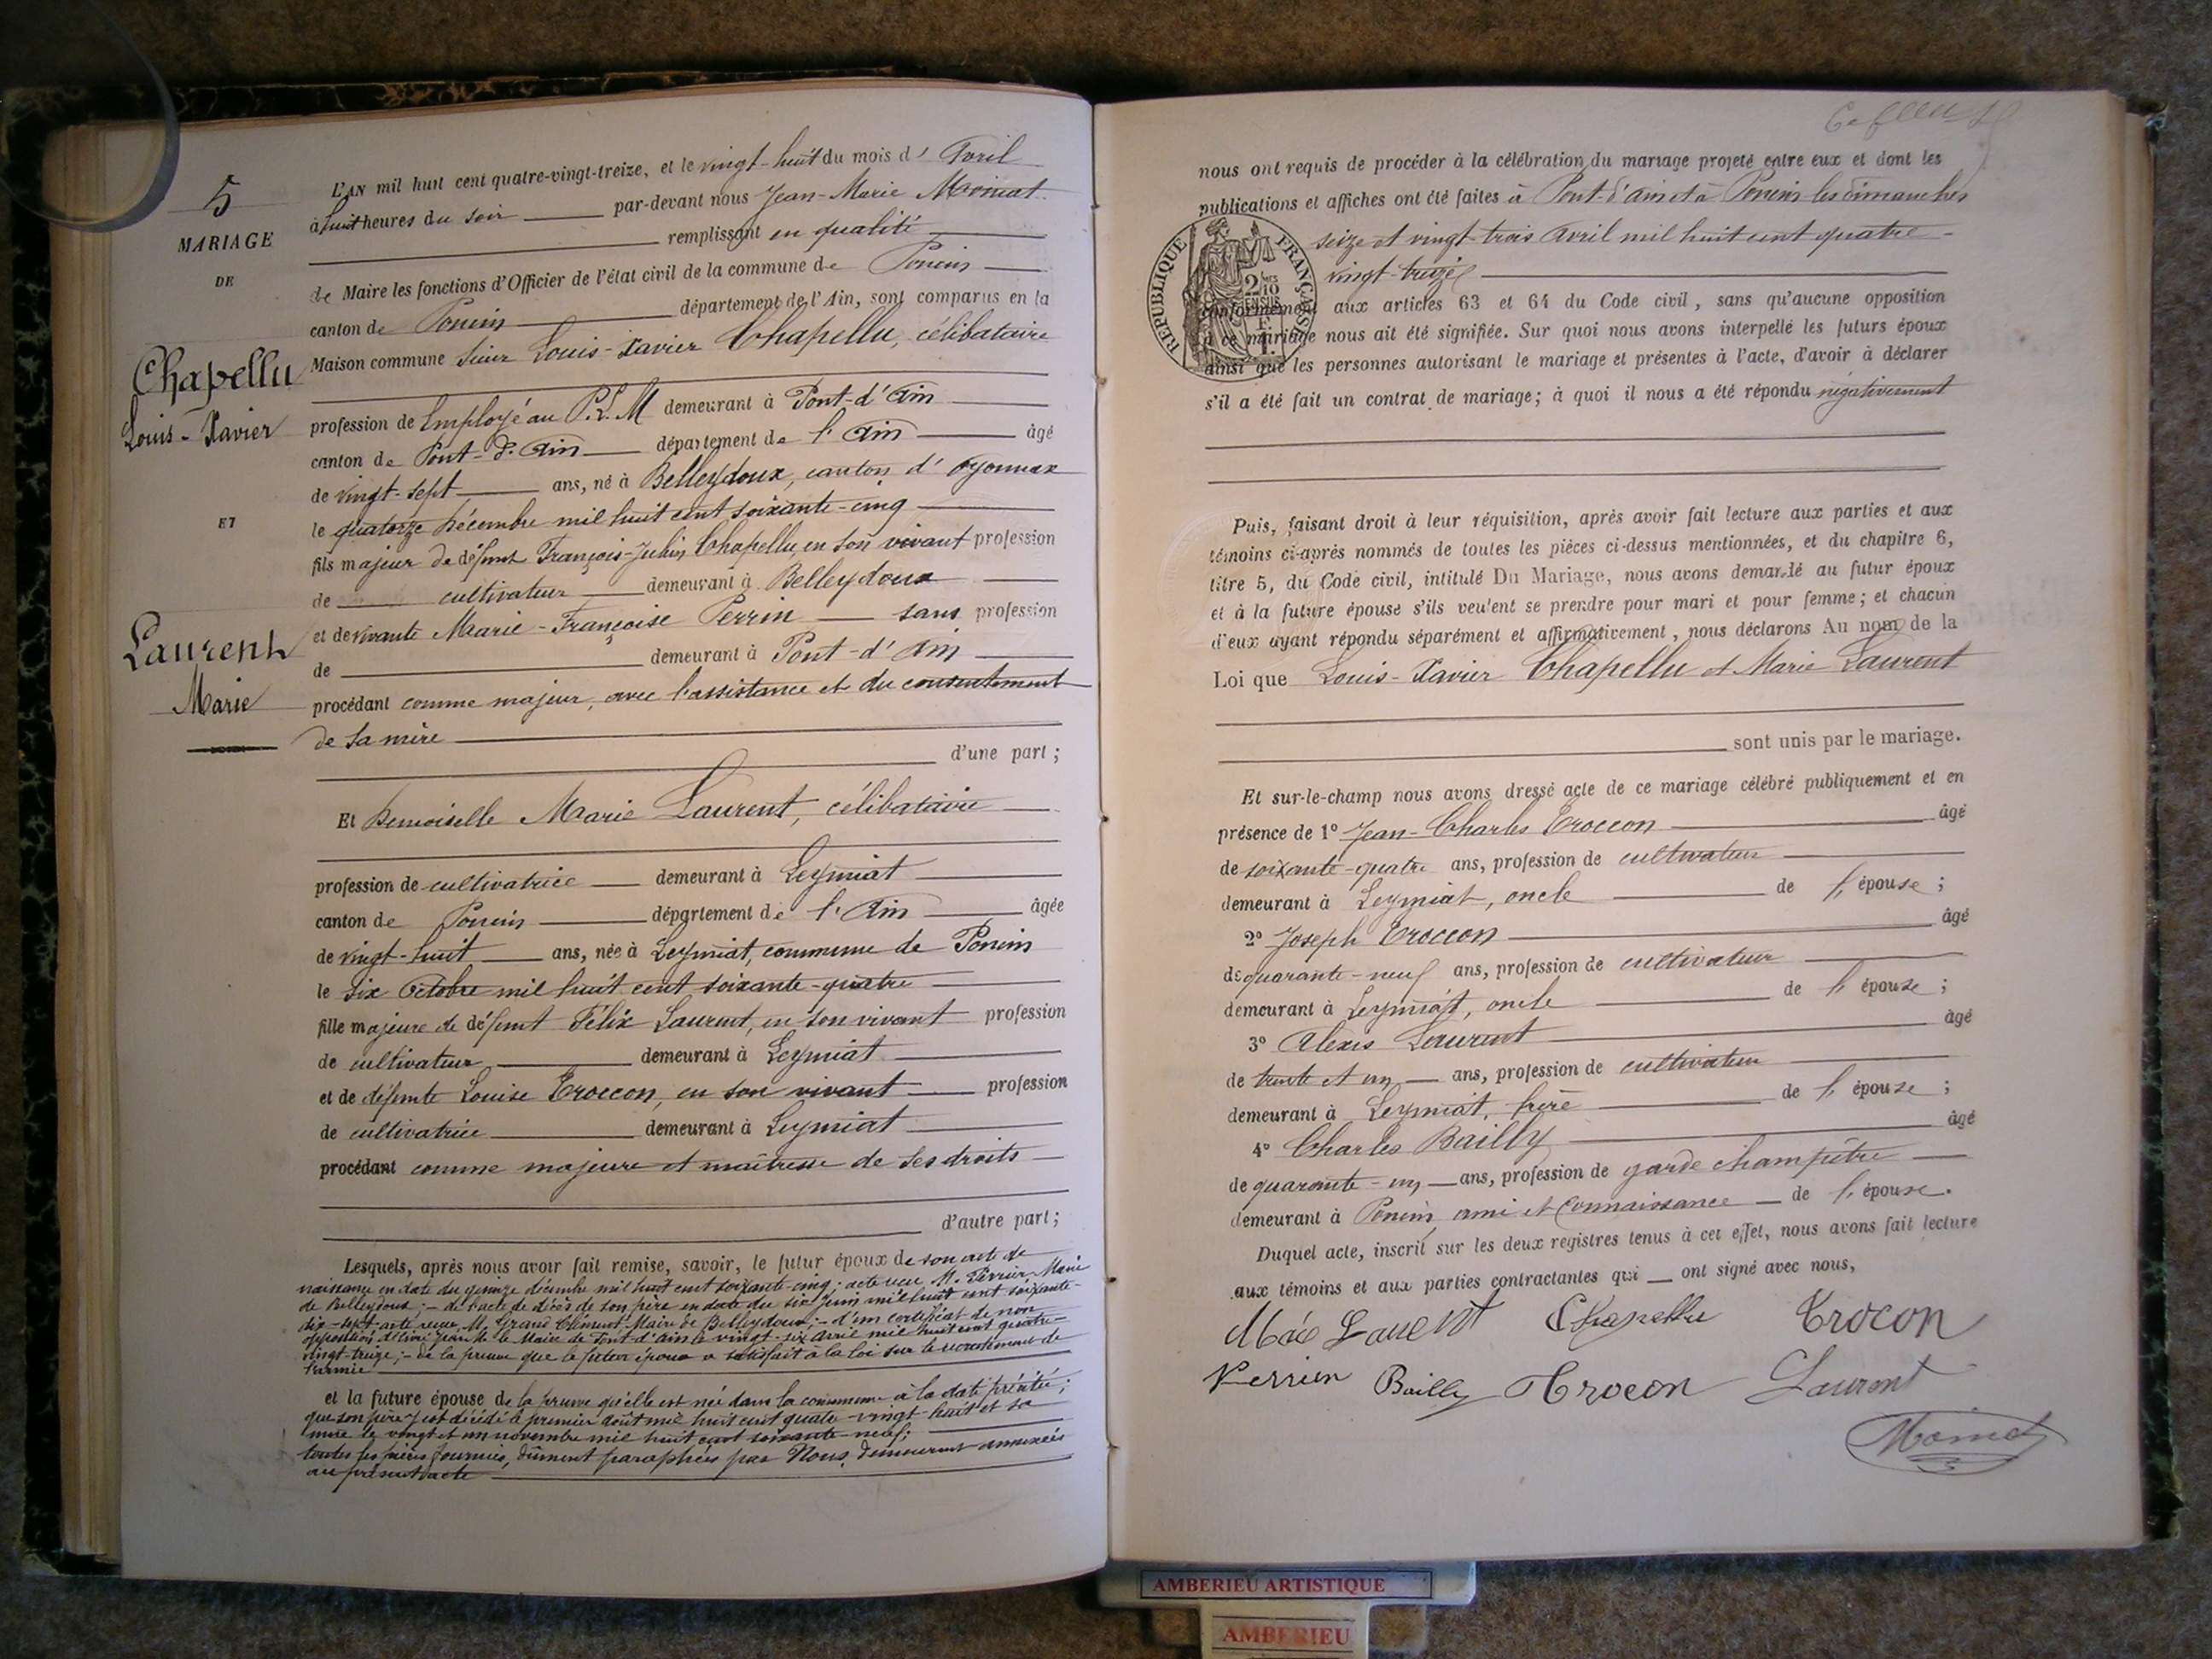 5
MARIAGE
DE
Chapellu
Louis-Xavier
ET
Laurent
Marie
L'AN mil huit cent quatre-vingt-treize, et le vingt-huit du mois d'Avril
à huit heures du soir par-devant nous Jean-Marie Moinat
remplissant en qualité
de Maire les fonctions d'Officier de l'état civil de la commune de Poncin
canton de Poncin département de l'Ain, sont comparus en la
Maison commune Sieur Louis-Xavier Chapellu, célibataire
profession de Employé au P.L.M demeurant à Pont-d'Ain
canton de Pont-d'Ain département de l'Ain âgé
de vingt-sept ans, né à Belleydoux, canton d'Oyonnax
le quatorze Décembre mil huit cent soixante-cinq
fils majeur de défunt François-Julien Chapellu, en son vivant profession
de cultivateur demeurant à Belleydoux
et de vivante Marie-Françoise Perrin sans profession
de demeurant à Pont-d'Ain
procédant comme majeur, avec l'assistance et du consentement
de sa mère
d'une part;
Et Demoiselle Marie Laurent, célibataire
profession de cultivatrice demeurant à Leymiat
canton de Poncin département de l'Ain âgée
de vingt-huit ans, née à Leymiat, commune de Poncin
le six Octobre mil huit cent soixante-quatre
fille majeure de défunt Félix Laurent, en son vivant profession
de cultivateur demeurant à Leymiat
et de défunte Louise Troccon, en son vivant profession
de cultivatrice demeurant à Leymiat
procédant comme majeure et maîtresse de ses droits
d'autre part;
Lesquels, après nous avoir fait remise, savoir, le futur époux de son acte de
naissance en date du quinze décembre mil huit cent soixante-cinq; acte reçu M. Perrier Maire
de Belleydoux; - de l'acte de décès de son père en date du six juin mil huit cent soixante-
dix-sept acte reçu M. Grand Clément Maire de Belleydoux; - d'un certificat de non
opposition délivré par M. le Maire de Pont-d'Ain le vingt-six avril mil huit cent quatre-
vingt-treize; - de la preuve que le futur époux a satisfait à la loi sur le recrutement de
l'armée
et la future épouse de la preuve qu'elle est née dans la commune à la date précitée;
que son père y est décédé le premier août mil huit cent quatre-vingt-huit et sa
mère le vingt et un novembre mil huit cent soixante-neuf;
toutes les pièces fournies, dûment paraphées par Nous, demeurent annexées
au présent acte
nous ont requis de procéder à la célébration du mariage projeté entre eux et dont les
publications et affiches ont été faites à Pont-d'Ain et à Poncin les dimanches
seize et vingt-trois Avril mil huit cent quatre-
vingt-treize
REPUBLIQUE FRANÇAISE
conformément aux articles 63 et 64 du Code civil, sans qu'aucune opposition
à ce mariage nous ait été signifiée. Sur quoi nous avons interpellé les futurs époux
ainsi que les personnes autorisant le mariage et présentes à l'acte, d'avoir à déclarer
s'il a été fait un contrat de mariage; à quoi il nous a été répondu négativement
Puis, faisant droit à leur réquisition, après avoir fait lecture aux parties et aux
témoins ci-après nommés de toutes les pièces ci-dessus mentionnées, et du chapitre 6,
titre 5, du Code civil, intitulé Du Mariage, nous avons demandé au futur époux
et à la future épouse s'ils veulent se prendre pour mari et pour femme; et chacun
d'eux ayant répondu séparément et affirmativement, nous déclarons Au nom de la
Loi que Louis-Xavier Chapellu et Marie Laurent
sont unis par le mariage.
Et sur-le-champ nous avons dressé acte de ce mariage célébré publiquement et en
présence de 1° Jean-Charles Troccon âgé
de soixante-quatre ans, profession de cultivateur
demeurant à Leymiat, oncle de l'épouse;
2° Joseph Troccon âgé
de quarante-neuf ans, profession de cultivateur
demeurant à Leymiat, oncle de l'épouse;
3° Alexis Laurent âgé
de trente et un ans, profession de cultivateur
demeurant à Leymiat, frère de l'épouse;
4° Charles Bailly âgé
de quarante-un ans, profession de garde champêtre
demeurant à Poncin, ami et connaissance de l'épouse.
Duquel acte, inscrit sur les deux registres tenus à cet effet, nous avons fait lecture
aux témoins et aux parties contractantes qui ont signé avec nous,
Laurent Chapellu Trocon
Perrin Bailly Trocon Laurent
Moinat
AMBERIEU ARTISTIQUE
AMBERIEU